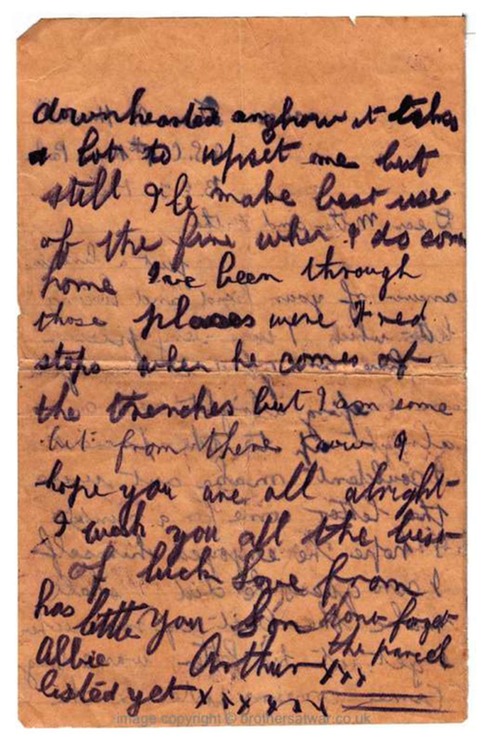 downhearted anyhow it takes
a lot to upset me but
still I'le make best use
of the fire when I do come
home I've been through
those places were Fred
stops when he comes of
the trenches but I am some
bit from there now I
hope you are all alright
I wish you all the best
of luck Love from
your Son
Arthur xxx
dont forget
the parcel
has little
Albie
listed yet x x x x x x
image copyright © brothersatwar.co.uk